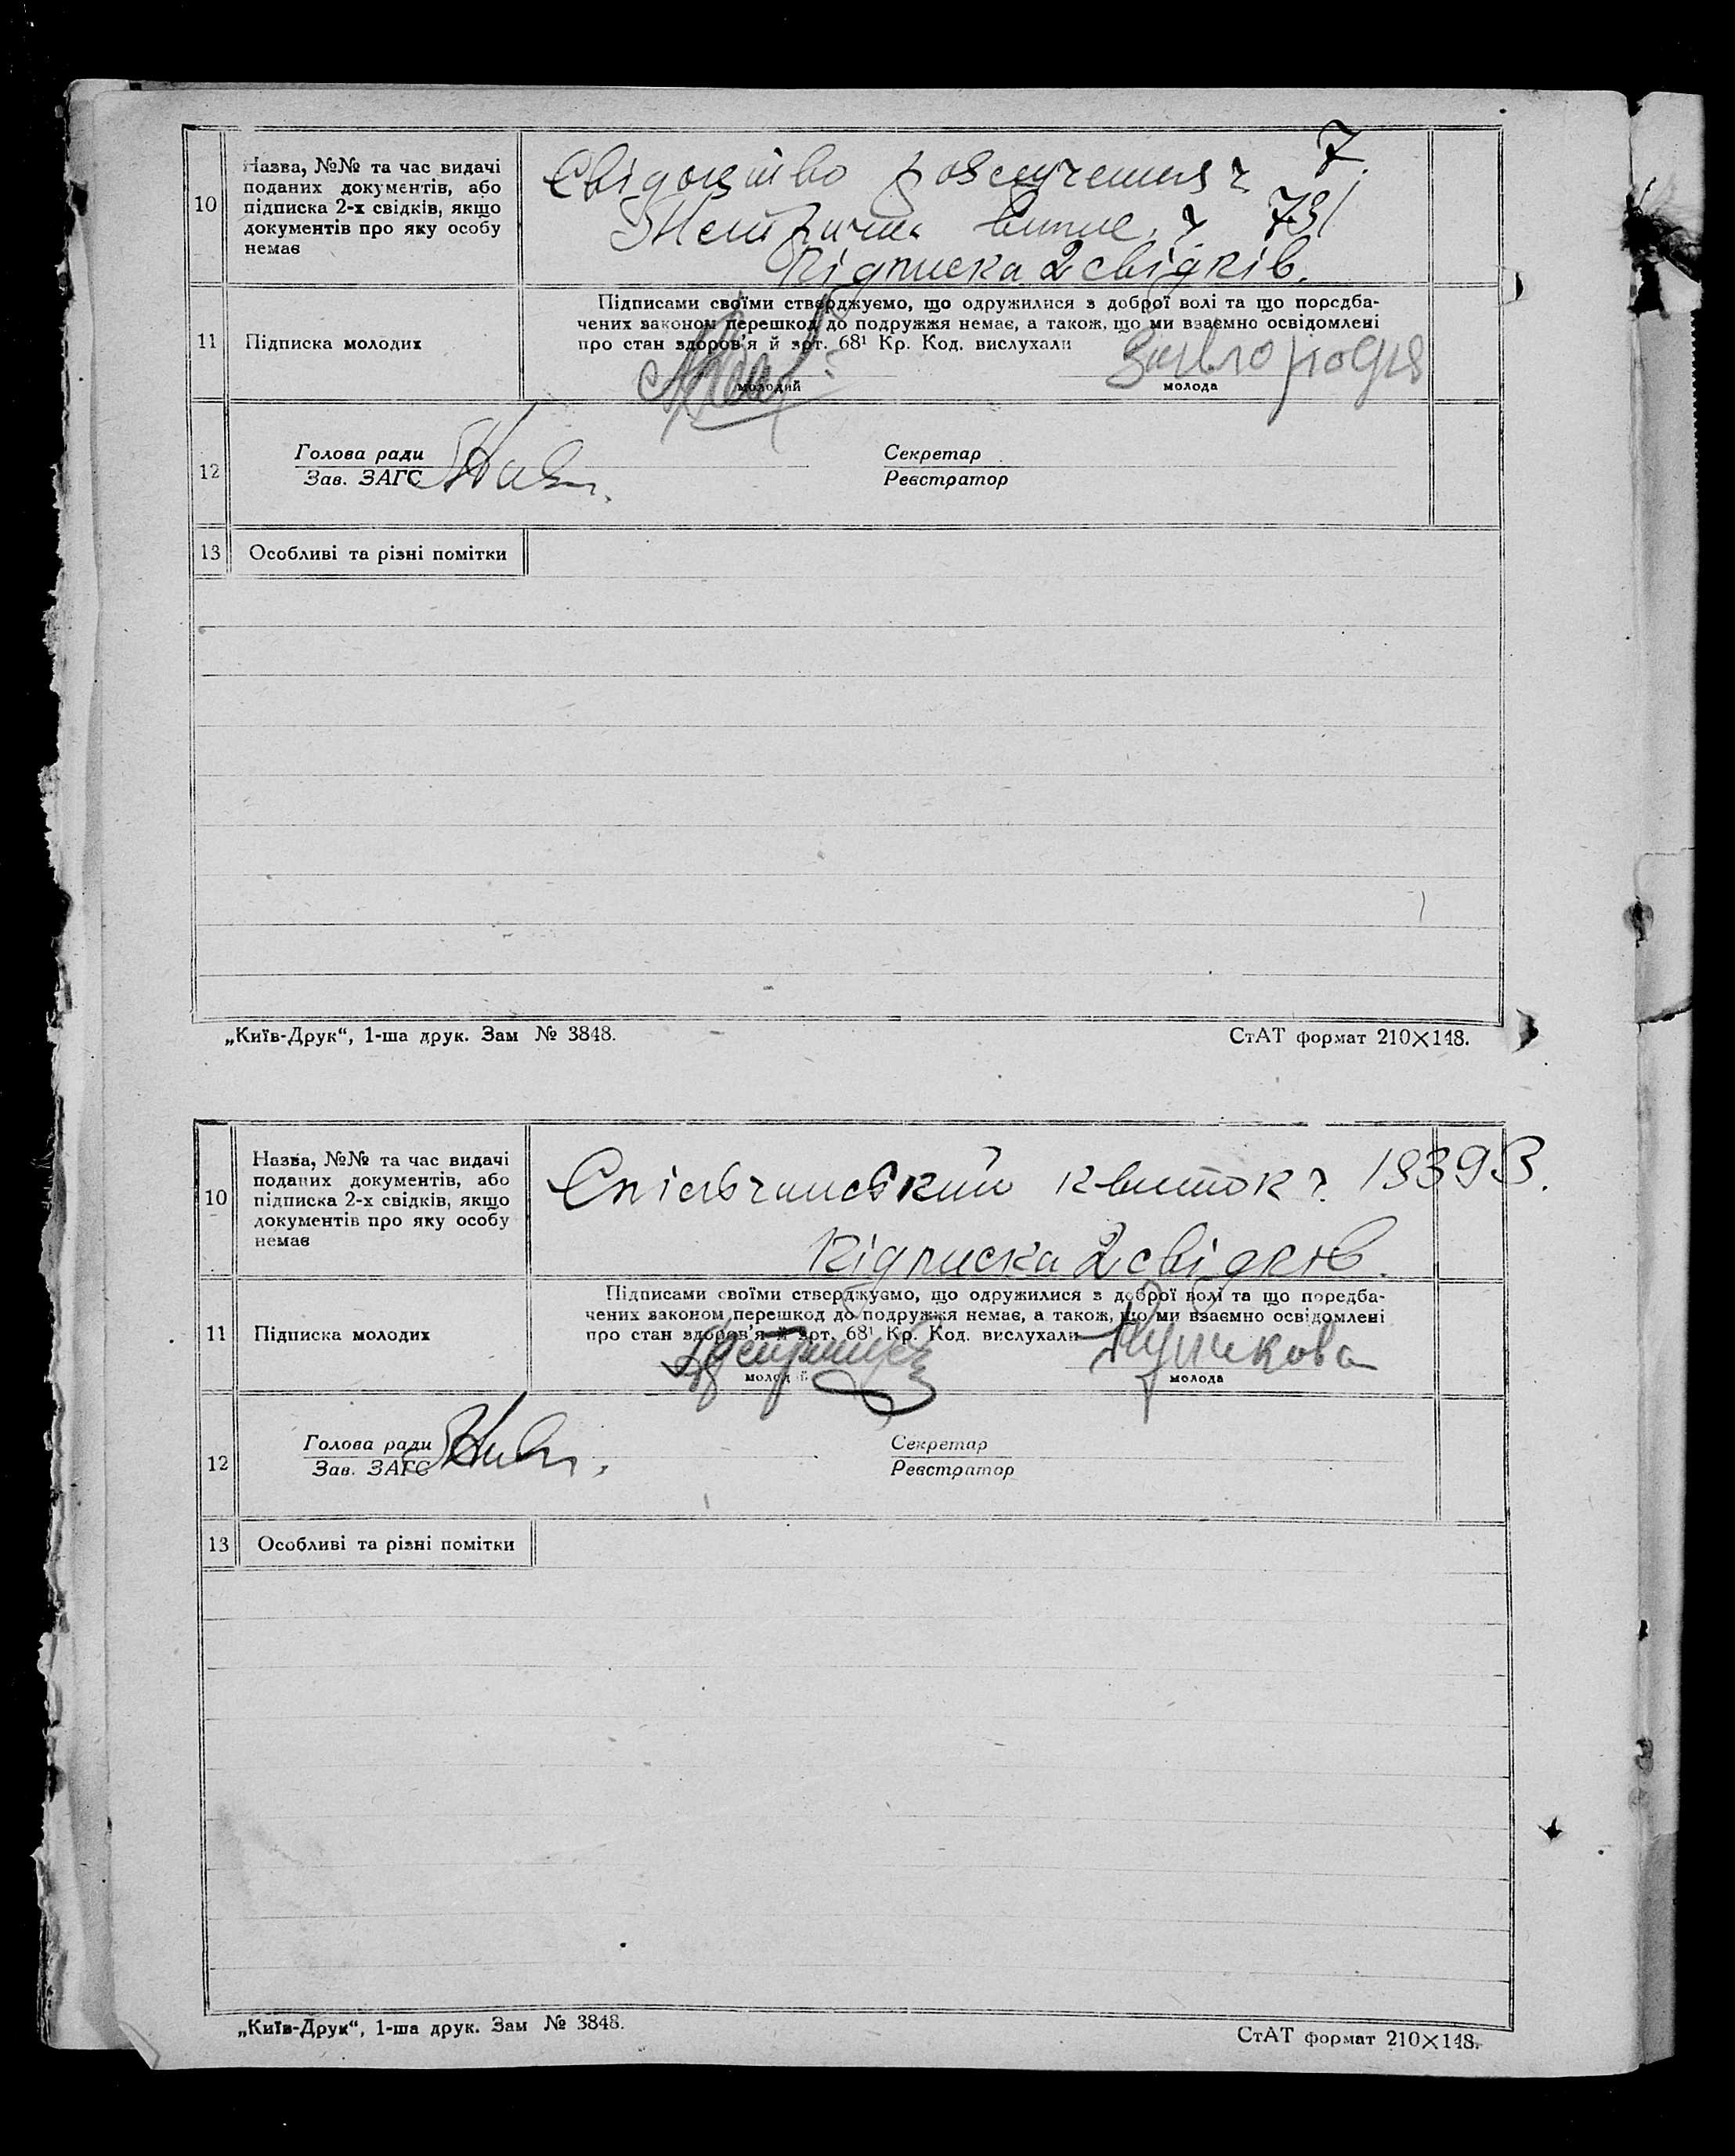 10
Назва, №№ та час видачі
поданих документів, або
підписка 2-х свідків, якщо
документів про яку особу
немає
Свідоцтво розлучення ч 7.
Метрична випис. ч 731
Підписка 2 свідків.
11
Підписка молодих
Підписами своїми стверджуємо, що одружилися з доброї волі та що поредба-
чених законом перешкод до подружжя немає, а також, що ми взаємно освідомлені
про стан здоров'я й арт. 68¹ Кр. Код. вислухали
молодий
молода
12
Голова ради
Зав. ЗАГС
Секретар
Реєстратор
13
Особливі та різні помітки
„Київ-Друк“, 1-ша друк. Зам № 3848.
СтАТ формат 210×148.
10
Назва, №№ та час видачі
поданих документів, або
підписка 2-х свідків, якщо
документів про яку особу
немає
Спілчанський квиток ч. 18393.
Підписка 2 свідків.
11
Підписка молодих
Підписами своїми стверджуємо, що одружилися з доброї волі та що поредба-
чених законом перешкод до подружжя немає, а також, що ми взаємно освідомлені
про стан здоров'я й арт. 68¹ Кр. Код. вислухали
молодий
молода
12
Голова ради
Зав. ЗАГС
Секретар
Реєстратор
13
Особливі та різні помітки
„Київ-Друк“, 1-ша друк. Зам № 3848.
СтАТ формат 210×148.